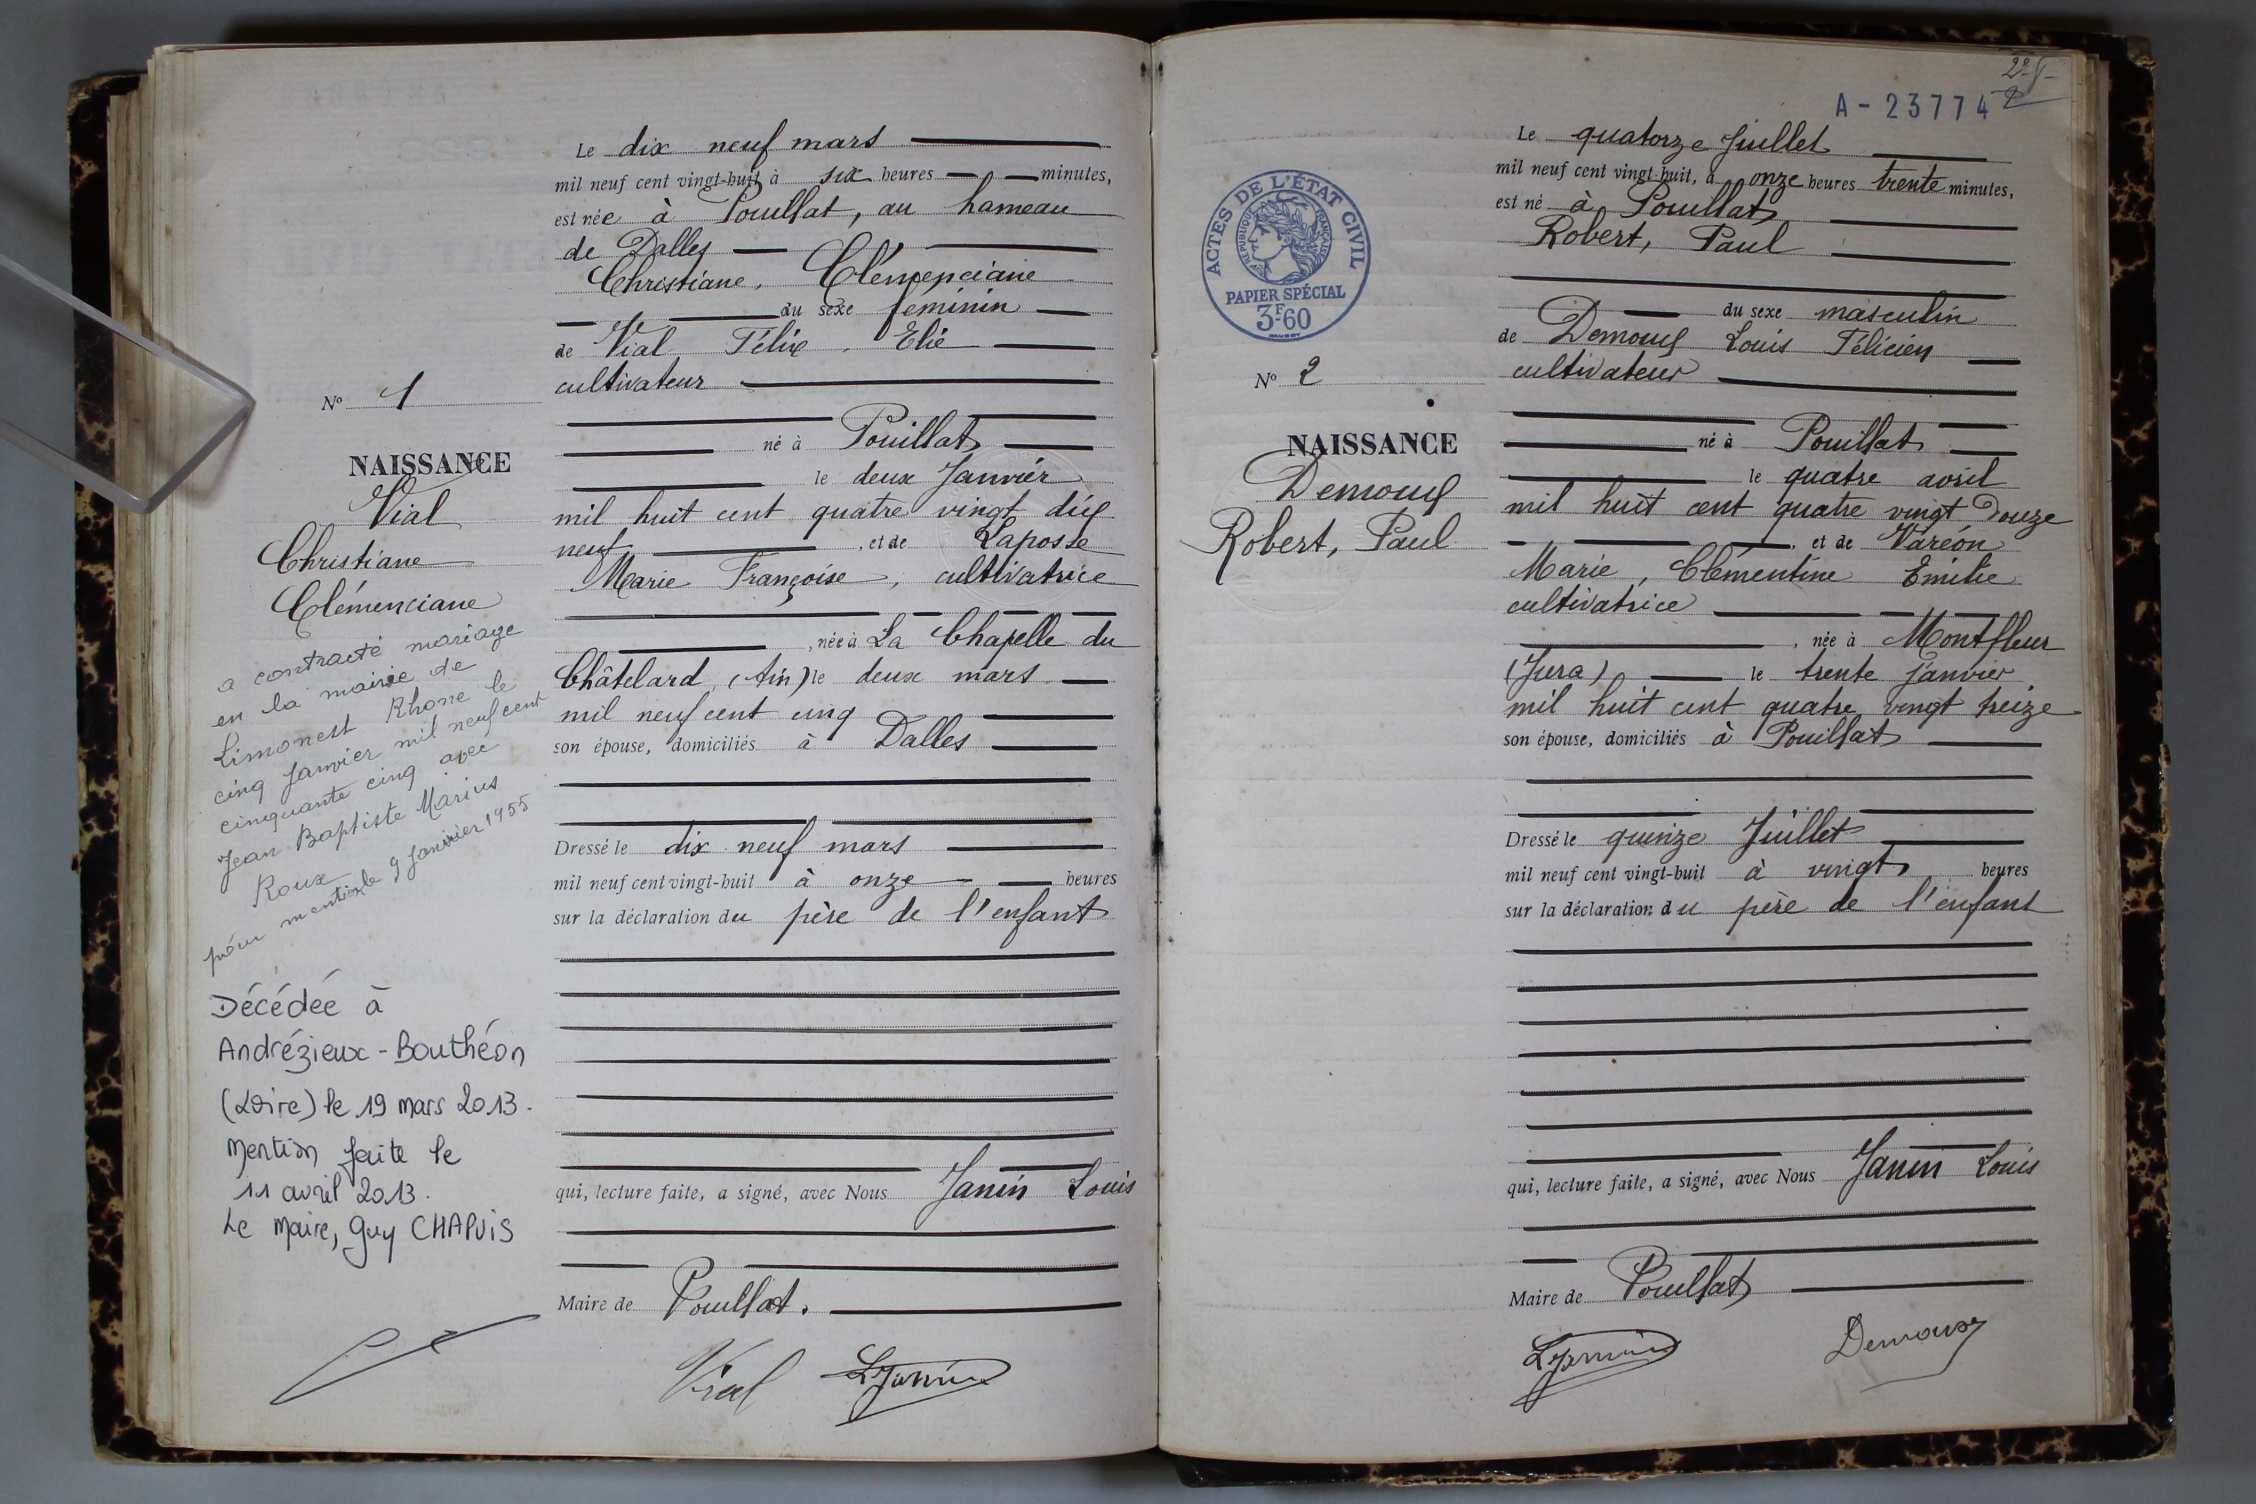 Nº 1
NAISSANCE
Vial
Christiane
Clémenciane
a contracté mariage
en la mairie de
Limonest Rhone le
cinq Janvier mil neuf cent
cinquante cinq avec
Jean Baptiste Marius
Roux
pour mention le 9 Janvier 1955
Décédée à
Andrézieux-Bouthéon
(Loire) le 19 mars 2013.
Mention faite le
11 avril 2013.
Le Maire, Guy CHAPUIS
Le dix neuf mars
mil neuf cent vingt-huit à six heures minutes,
est née à Pouillat, au hameau
de Dalles
Christiane, Clémenciane
du sexe féminin
de Vial Félix, Elie
cultivateur
né à Pouillat
le deux Janvier
mil huit cent quatre vingt dix
neuf, et de Laposse
Marie Françoise, cultivatrice
, née à La Chapelle du
Châtelard, (Ain) le deux mars
mil neuf cent cinq
son épouse, domiciliés à Dalles
Dressé le dix neuf mars
mil neuf cent vingt-huit à onze heures
sur la déclaration du père de l'enfant
qui, lecture faite, a signé, avec Nous Janin Louis
Maire de Pouillat.
Vial LJanin
A-23774
2
ACTES DE L'ÉTAT CIVIL
RÉPUBLIQUE FRANÇAISE
PAPIER SPÉCIAL
3F60
Nº 2
NAISSANCE
Demoux
Robert, Paul
Le quatorze Juillet
mil neuf cent vingt-huit, à onze heures trente minutes,
est né à Pouillat
Robert, Paul
du sexe masculin
de Demoux Louis Félicien
cultivateur
né à Pouillat
le quatre avril
mil huit cent quatre vingt douze
, et de Varéon
Marie, Clémentine Emilie
cultivatrice
, née à Montfleur
(Jura) le trente janvier
mil huit cent quatre vingt treize
son épouse, domiciliés à Pouillat
Dressé le quinze Juillet
mil neuf cent vingt-huit à vingt heures
sur la déclaration du père de l'enfant
qui, lecture faite, a signé, avec Nous Janin Louis
Maire de Pouillat
LJanin Demoux